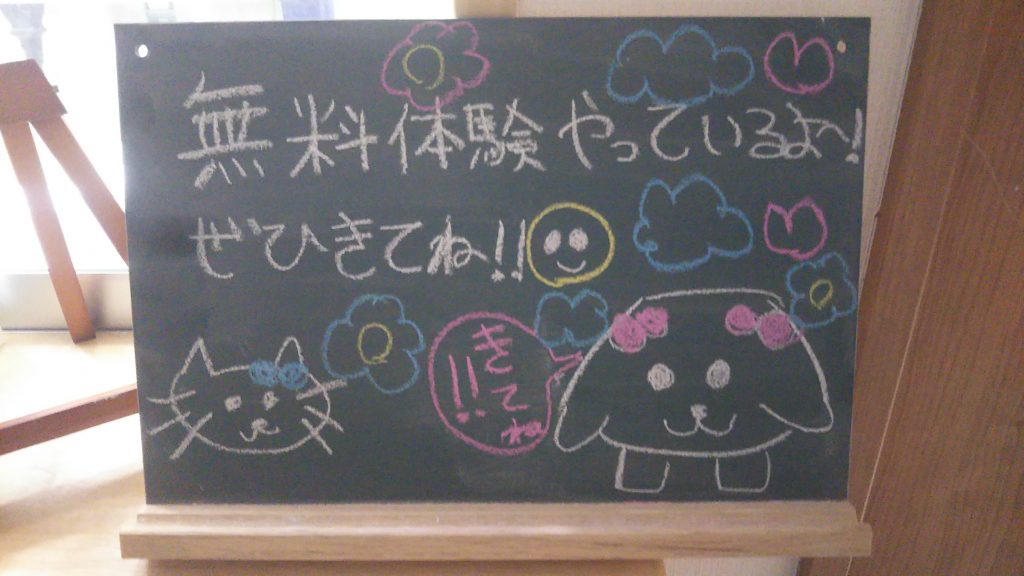 無料体験やっているよ~!
ぜひきてね!!
きてね
!!